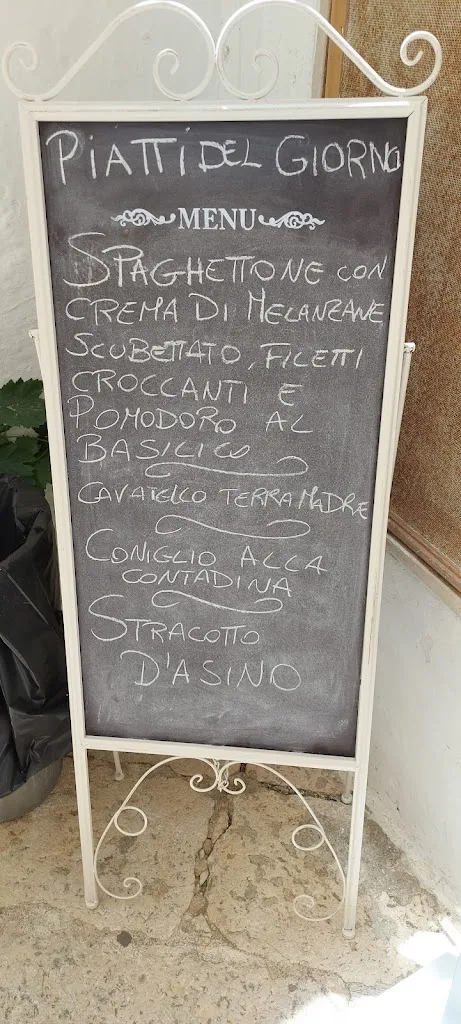 PIATTI DEL GIORNO
MENU
SPAGHETTONE CON
CREMA DI MELANZANE
SCUBETTATO, FILETTI
CROCCANTI E
POMODORO AL
BASILICO
CAVATELLO TERRA MADRE
CONIGLIO ALLA
CONTADINA
STRACOTTO
D'ASINO